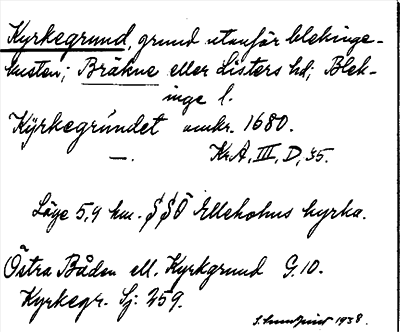 Kyrkegrund, grund utanför blekinge-
kusten; Bräkne eller Listers hd; Blek-
inge l.
Kÿrkegrúndet omkr. 1680.
—. Kr.A, III, D, 35.
Läge 5,9 km. SSÖ Elleholms kyrka.
Östra Båden ell. Kyrkgrund G.10.
Kyrkegr. Sj: 259.
1938.